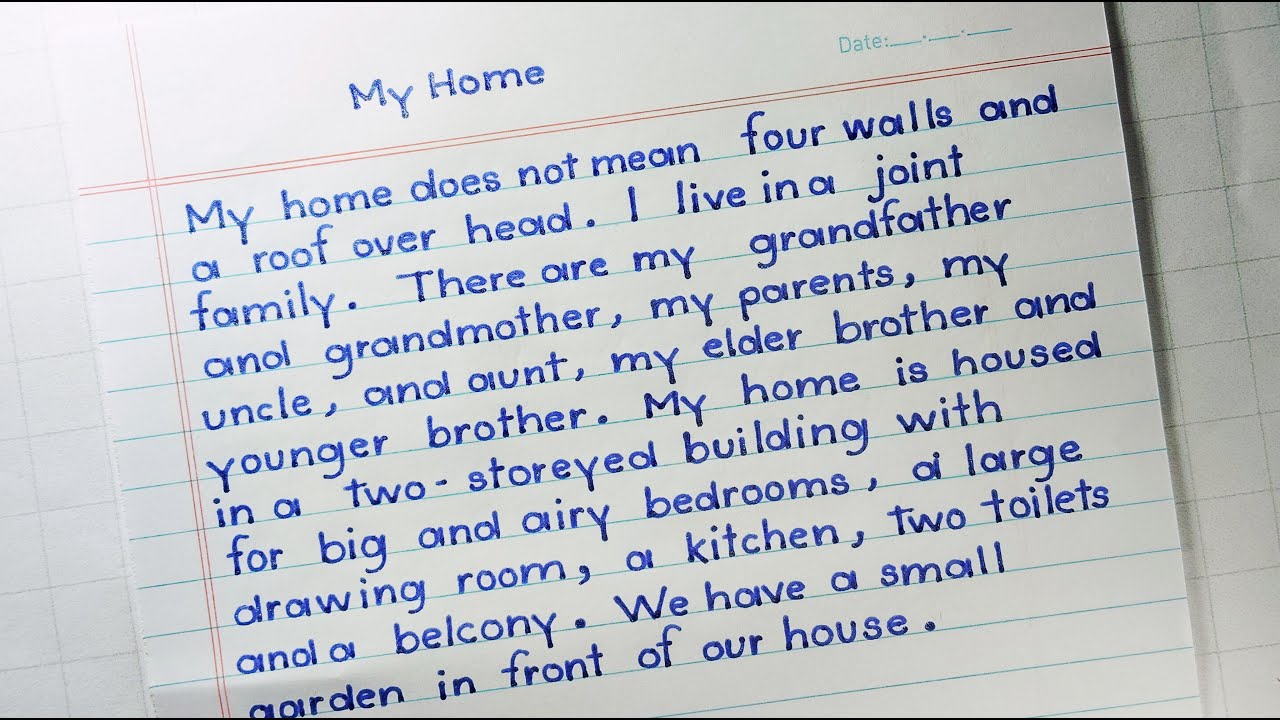 Date:__.__.__
My Home
My home does not mean four walls and
a roof over head. I live in a joint
family. There are my grandfather
and grandmother, my parents, my
uncle, and aunt, my elder brother and
younger brother. My home is housed
in a two-storeyed building with
for big and airy bedrooms, a large
drawing room, a kitchen, two toilets
and a belcony. We have a small
garden in front of our house.